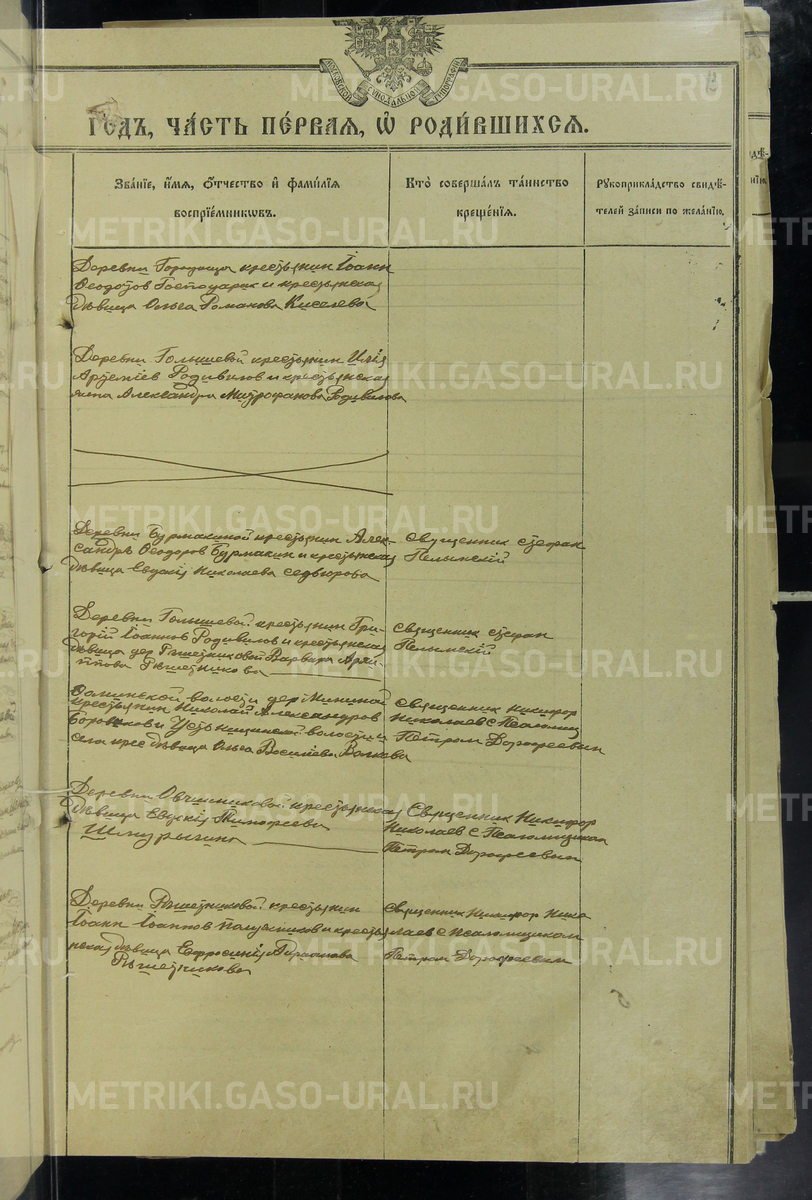 ГОДЪ, ЧАСТЬ ПЕРВАЯ, Ѡ РОДИВШИХСЯ.
Званіе, имя, отчество и фамилія
воспріемниковъ.
Кто совершалъ таинство
крещенія.
Рукоприкладство свидѣ-
телей записи по желанію.
Деревни Городища крестьянин Іоанн
Ѳеодотов Господарик и крестьянская
дѣвица Ольга Романова Киселева
Деревни Голышевой крестьянин Илія
Артеміев Родивилов и крестьянская
Александра Митрофанова Родивилова
Деревни Бурмакиной крестьянин Алек-
сандръ Ѳеодоров Бурмакин и крестьянская
дѣвица Евдокія Николаева
священник Стефан
Пелымскій
Деревни Голышевой крестьянин Гри-
горій Іоаннов Родивилов и крестьянская
дѣвица дер Рѣшетниковой Варвара
Рѣшетникова
священник Стефан
Пелымскій
волости дер Мининой
крестьянин Николай Александров
Боровиков и волости
села крес дѣвица Ольга Василіева Волкова
священник Никифор
Николаев с Псаломщ
Петром Дорофеевым
Деревни Овчинниковой крестьянская
дѣвица Евдокія Тимофеева
Шмурыгина
Священник Никифор
Николаев с Псаломщиком
Петром Дорофеевым
Деревни Рѣшетниковой крестьянин
Іоанн Іоаннов и крестья
нская дѣвица Евфросинія
Рѣшетникова
Священник Никифор Нико
лаев с Псаломщиком
Петром Дорофеевым
METRIKI.GASO-URAL.RU